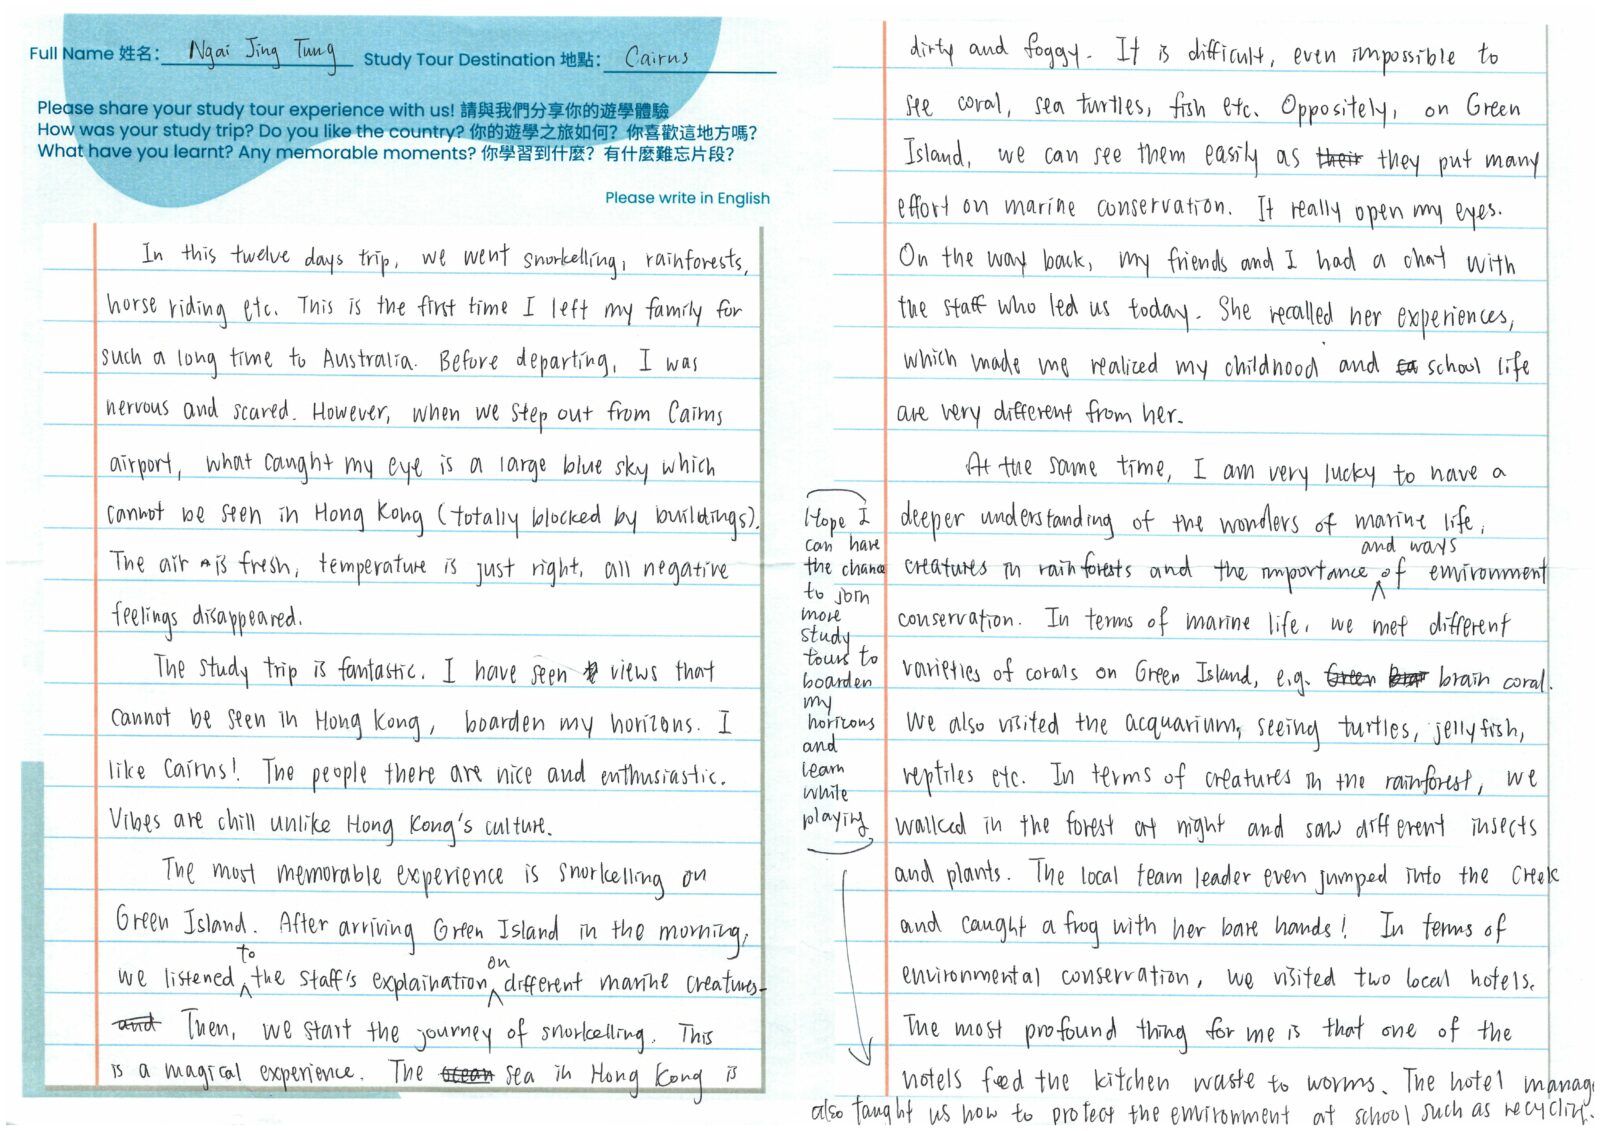 Full Name 姓名： Ngai Jing Tung Study Tour Destination 地點： Cairns
Please share your study tour experience with us! 請與我們分享你的遊學體驗
How was your study trip? Do you like the country? 你的遊學之旅如何？你喜歡這地方嗎？
What have you learnt? Any memorable moments? 你學習到什麼？有什麼難忘片段？
Please write in English
In this twelve days trip, we went snorkelling, rainforests,
horse riding etc. This is the first time I left my family for
such a long time to Australia. Before departing, I was
nervous and scared. However, when we step out from Cairns
airport, what caught my eye is a large blue sky which
cannot be seen in Hong Kong (totally blocked by buildings).
The air is fresh, temperature is just right, all negative
feelings disappeared.
The study trip is fantastic. I have seen views that
cannot be seen in Hong Kong, boarden my horizons. I
like Cairns! The people there are nice and enthusiastic.
Vibes are chill unlike Hong Kong's culture.
The most memorable experience is snorkelling on
Green Island. After arriving Green Island in the morning,
we listened to the staff's explaination on different marine creatures.
and Then, we start the journey of snorkelling. This
is a magical experience. The ocean sea in Hong Kong is
dirty and foggy. It is difficult, even impossible to
see coral, sea turtles, fish etc. Oppositely, on Green
Island, we can see them easily as their they put many
effort on marine conservation. It really open my eyes.
On the way back, my friends and I had a chat with
the staff who led us today. She recalled her experiences,
which made me realized my childhood and school life
are very different from her.
At the same time, I am very lucky to have a
deeper understanding of the wonders of marine life,
creatures in rainforests and the importance and ways of environment
conservation. In terms of marine life, we met different
varieties of corals on Green Island, e.g. Green brain coral.
We also visited the acquarium, seeing turtles, jellyfish,
reptiles etc. In terms of creatures in the rainforest, we
walked in the forest at night and saw different insects
and plants. The local team leader even jumped into the creek
and caught a frog with her bare hands! In terms of
environmental conservation, we visited two local hotels.
The most profound thing for me is that one of the
hotels feed the kitchen waste to worms. The hotel manag
also taught us how to protect the environment at school such as recycling.
Hope I
can have
the chance
to join
more
study
tours to
boarden
my
horizons
and
learn
while
playing